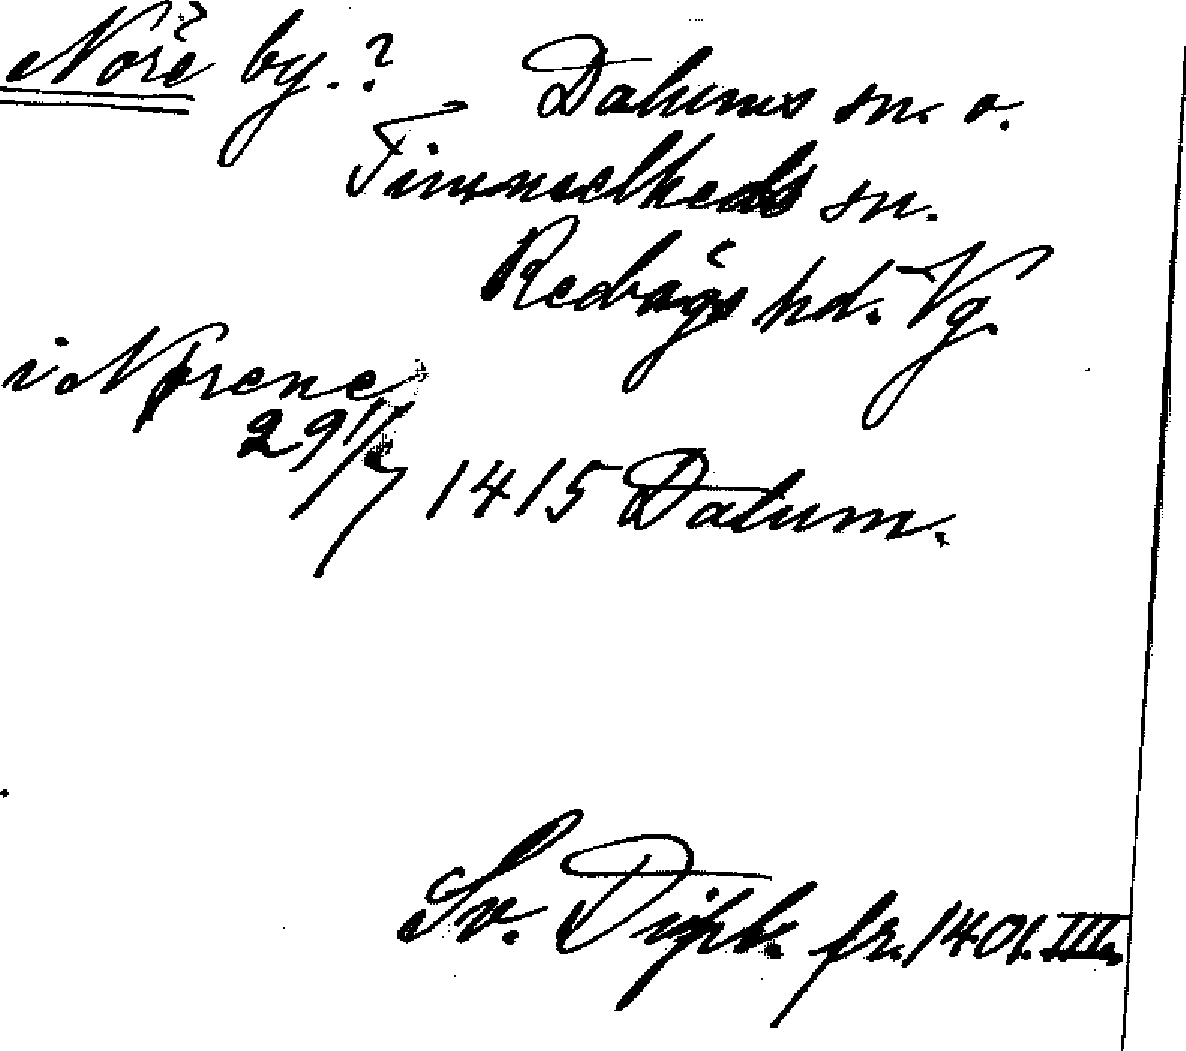 Nore by.? Dalums sn. o.
Timmelheds sn.
Redvägs hd. Vg.
i Nørene
29/7 1415 Dalum.
Sv. Dipl. fr. 1401. III.